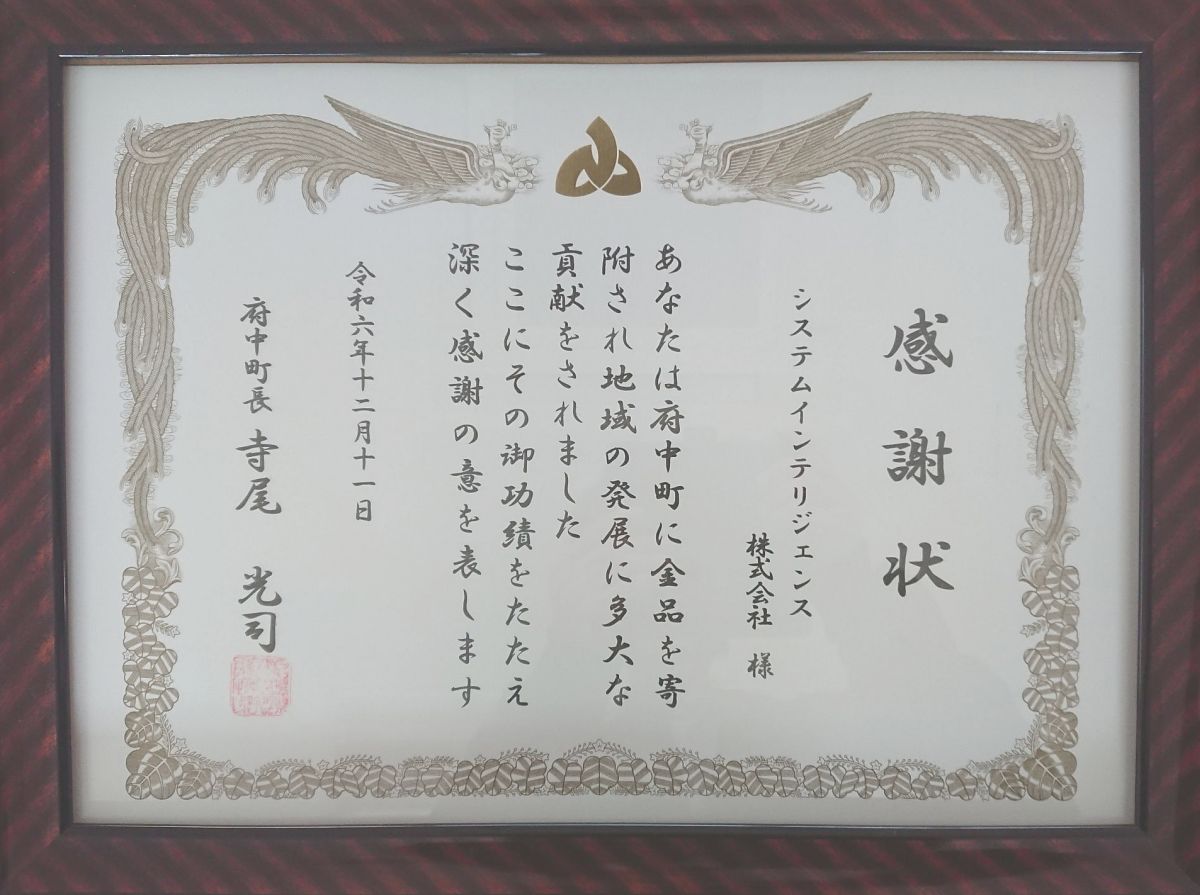 感謝状
システムインテリジェンス
株式会社 様
あなたは府中町に金品を寄
附され地域の発展に多大な
貢献をされました
ここにその御功績をたたえ
深く感謝の意を表します
令和六年十二月十一日
府中町長 寺尾 光司